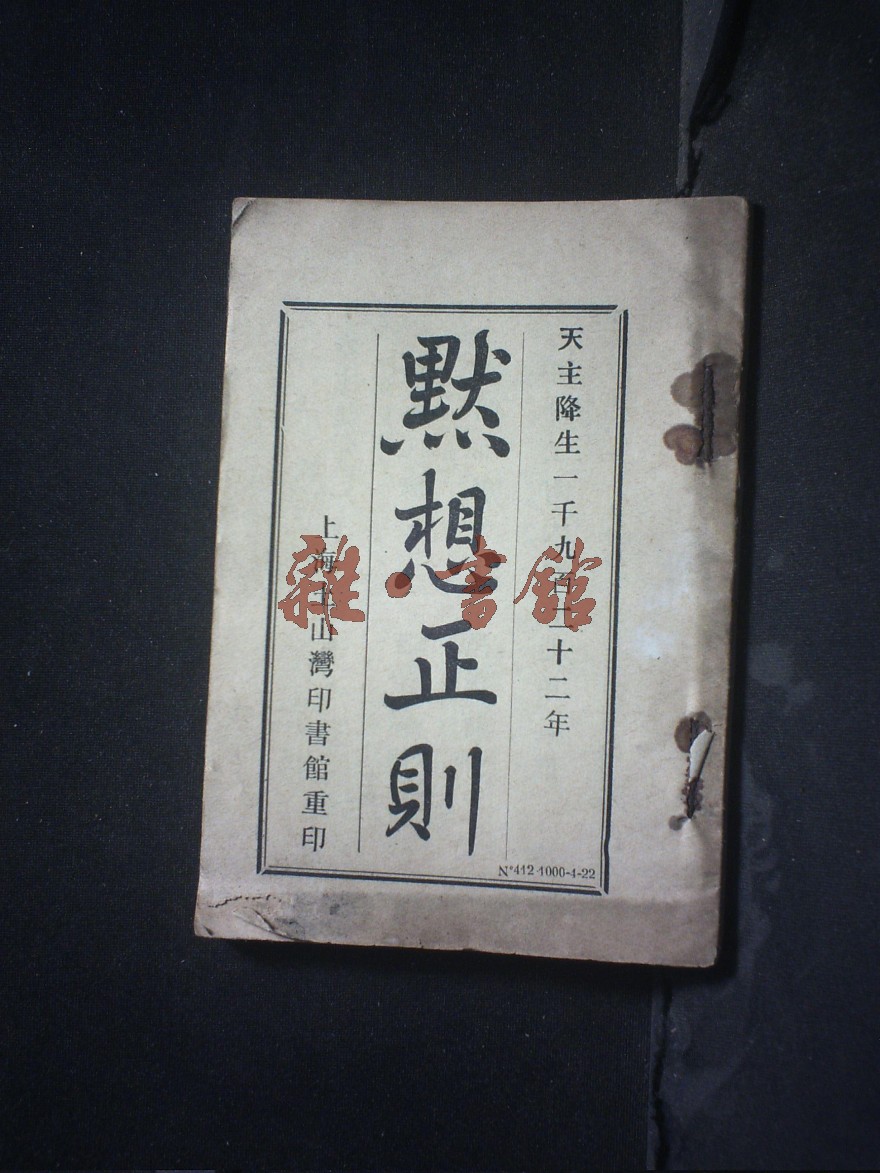 天主降生一千九百二十二年
默想正則
上海土山灣印書館重印
N° 412-1000-1-22
雜·書館